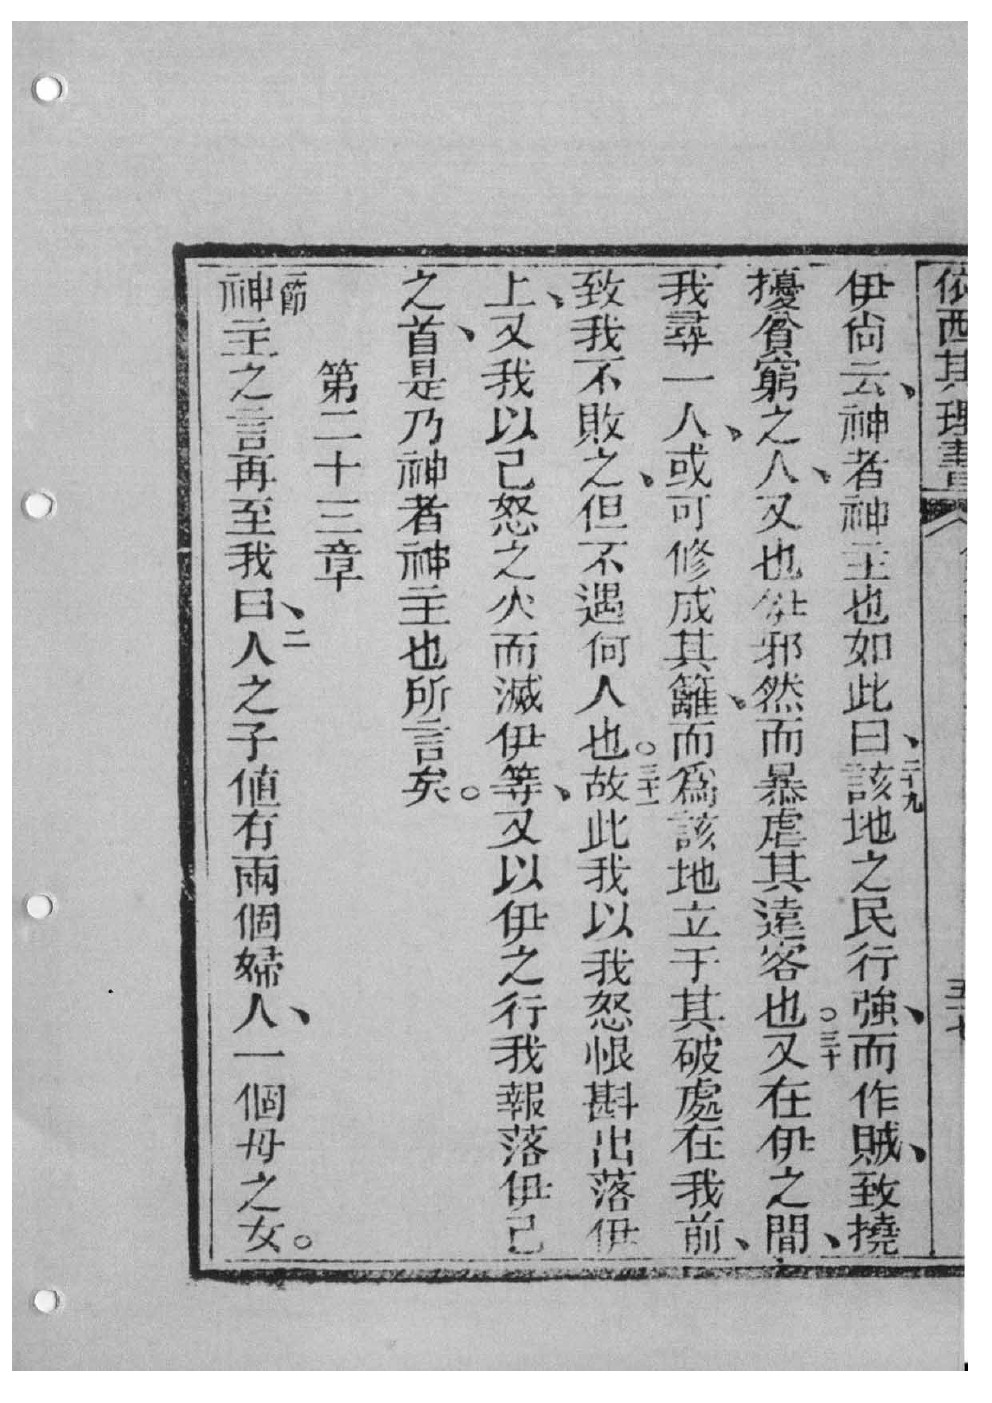 依西其理書
伊尙云、神者神主也如此曰、二十九該地之民行強、而作賊、致撓
擾貧窮之人、又也伊邪然而暴虐其遠客也。三十又在伊之間、
我尋一人、或可修成其籬、而爲該地立于其破處在我前、
致我不敗之、但不遇何人也。三十一故此我以我怒恨斟出落伊
上、又我以己怒之火而滅伊等、又以伊之行我報落伊己
之首、是乃神者神主也所言矣。
第二十三章
一節神主之言再至我曰、二人之子値有兩個婦人、一個母之女。